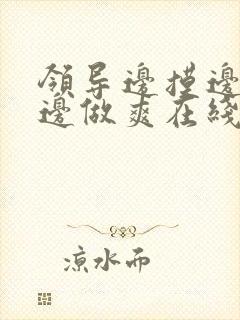 领导邊摸邊
邊做爽在綫
凉水而